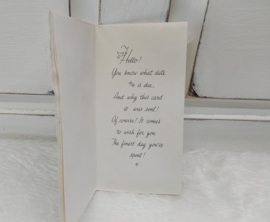 Hello!
You know what date
it is due,
And why this card
it was sent!
Of course! It comes
to wish for you
The finest day you've
spent!